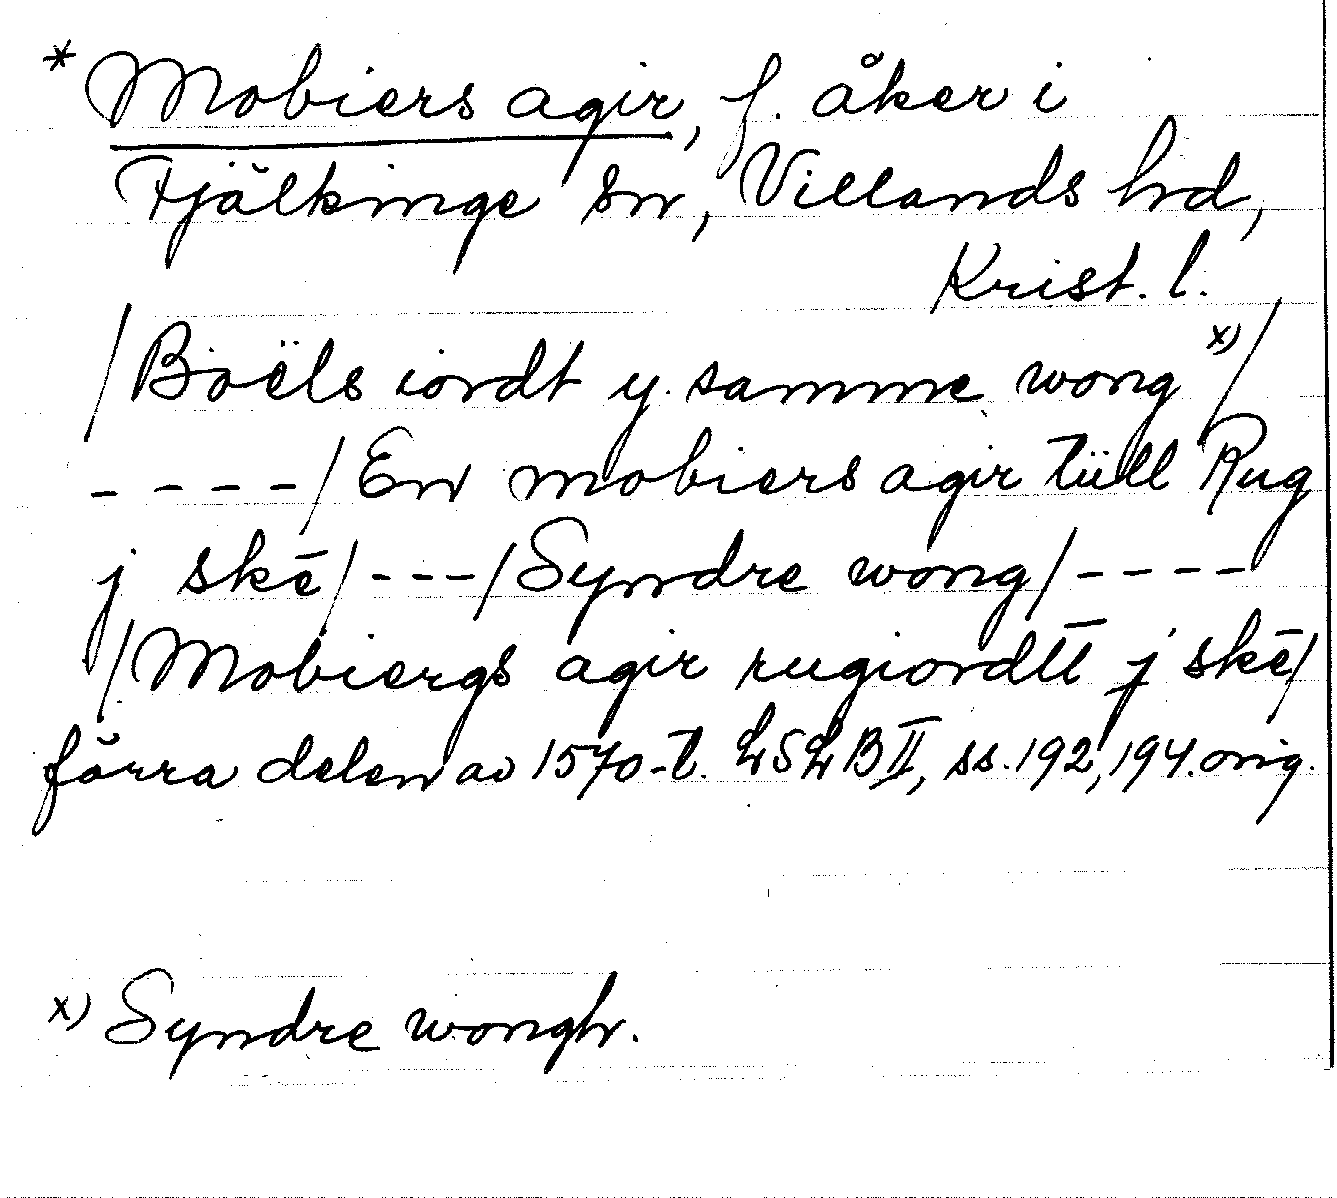 * Mobiers agir, f. åker i
Fjälkinge sn, Villands hrd,
Krist. l.
/Boëls iordt y samme wong x)/
----/En mobiers agir tüll Rug
j skē/---/Syndre wong/----
/Mobiergs agir rugiordtt j skē/
förra delen av 1570-t. LSLB II, ss. 192, 194. orig.
x) Syndre wongh.